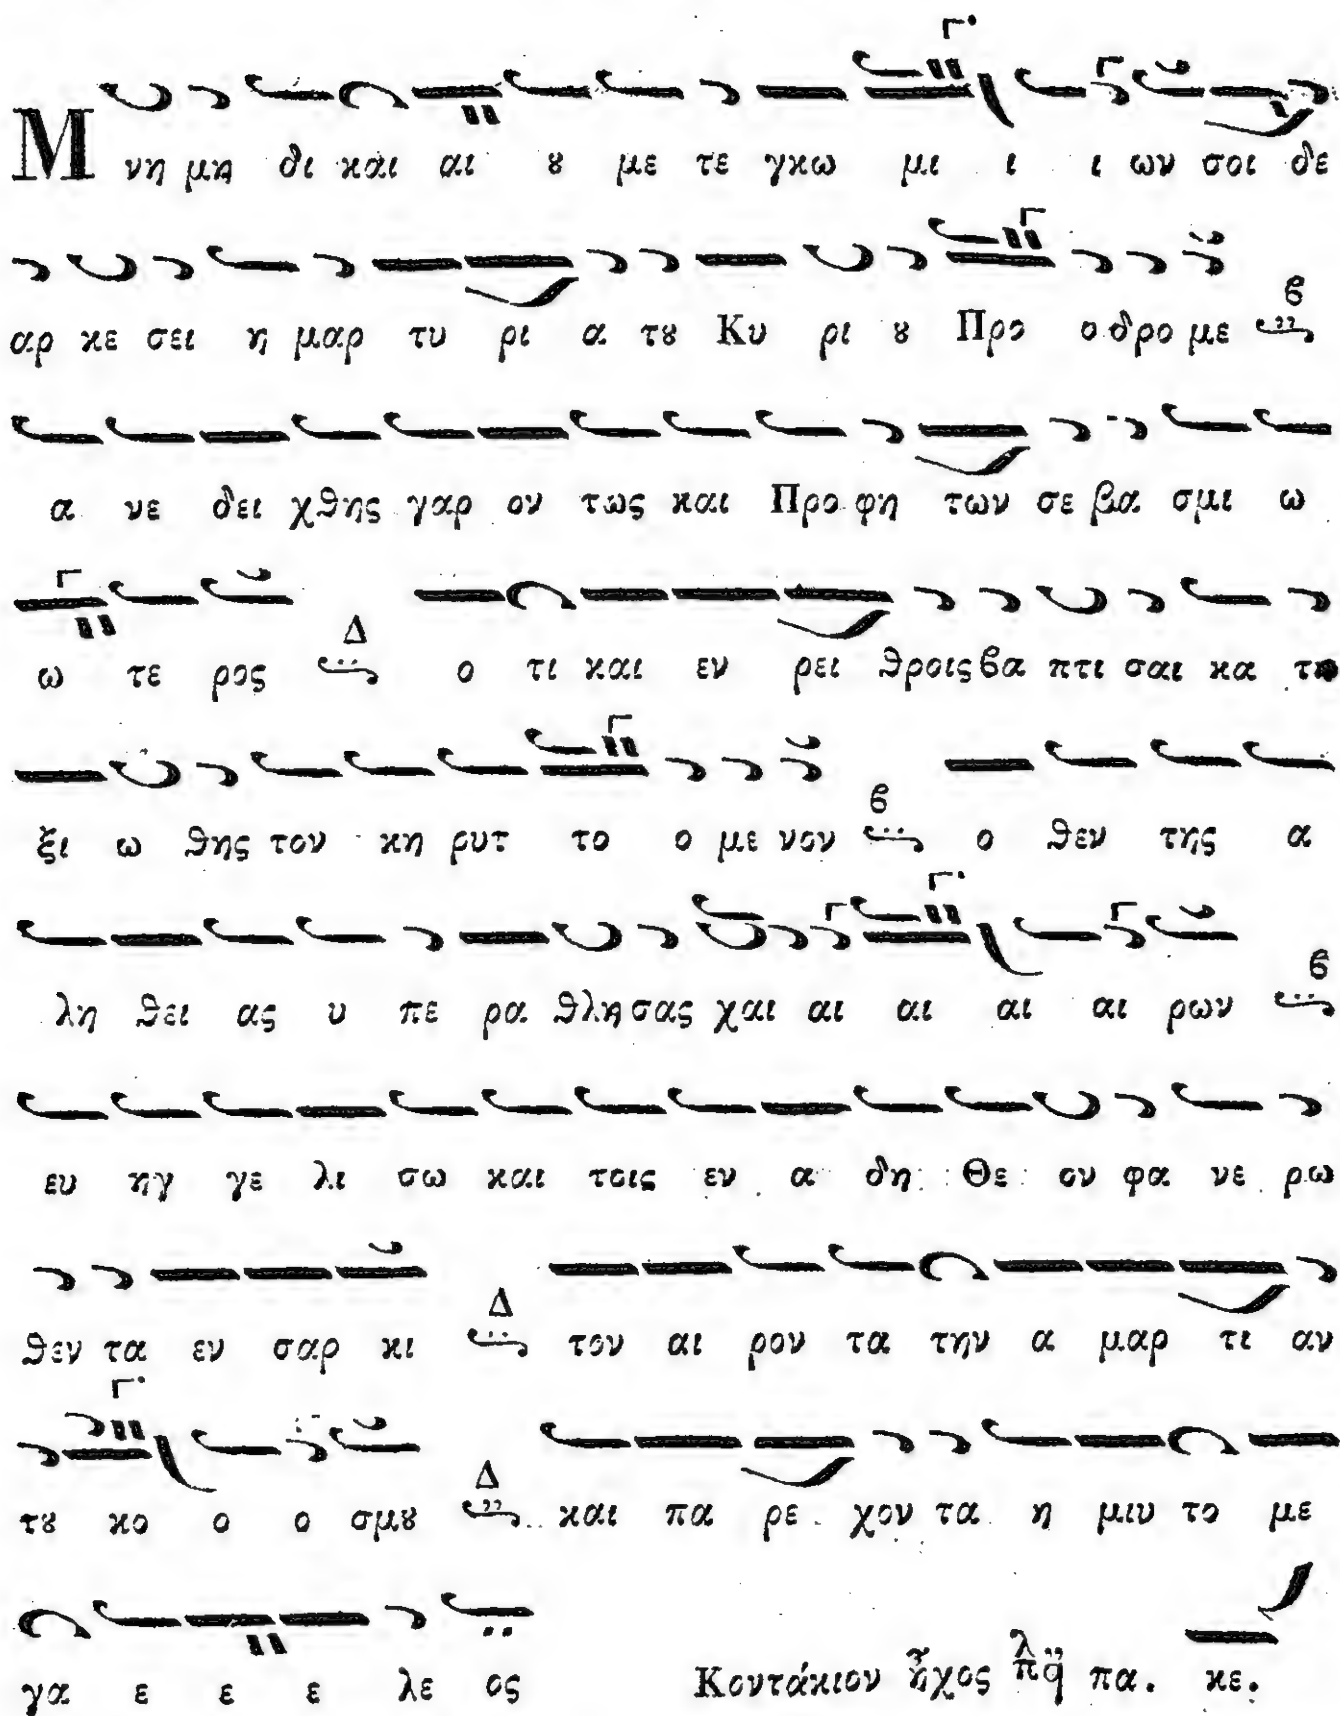 Μ νη μη δι και αι ȣ με τε γκω μι ι ι ων σοι δε
αρ κε σει η μαρ τυ ρι α τȣ Κυ ρι ȣ Προ ο δρο με β
α νε δει χθης γαρ ον τως και Προ φη των σε βα σμι ω
ω τε ρος Δ ο τι και εν ρει θροις βα πτι σαι κα τη
ξι ω θης τον κη ρυτ το ο με νον β ο θεν της α
λη θει ας υ πε ρα θλη σας χαι αι αι αι αι ρων β
ευ ηγ γε λι σω και τοις εν α δη Θε ον φα νε ρω
θεν τα εν σαρ κι Δ τον αι ρον τα την α μαρ τι αν
τȣ κο ο ο σμȣ Δ και πα ρε χον τα η μιν το με
γα ε ε ε λε ος Κοντάκιον ἦχος πα. κε.